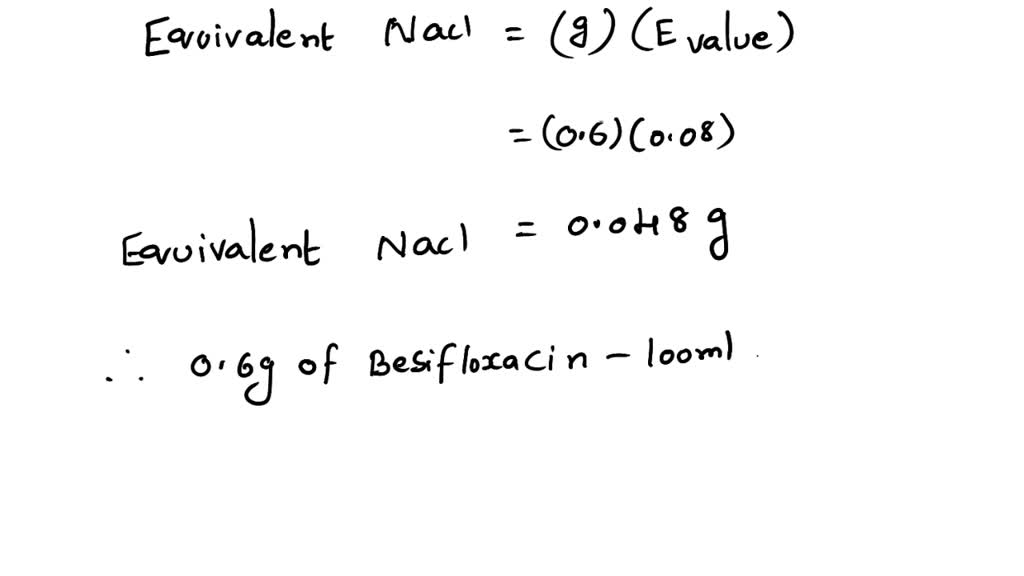 Equivalent Nacl = (g) (E value)
= (0.6) (0.08)
Equivalent Nacl = 0.048 g
∴ 0.6g of Besifloxacin - 100ml